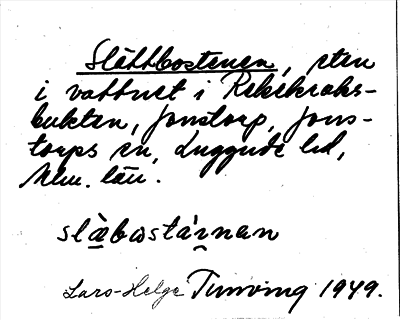 Slättbostenen, sten
i vattnet i Rekekroks-
bukten, Jonstorp, Jons-
torps sn, Luggude hd,
Mlm. län.
slæ̀bostánan
Lars-Helge Tunving 1949.